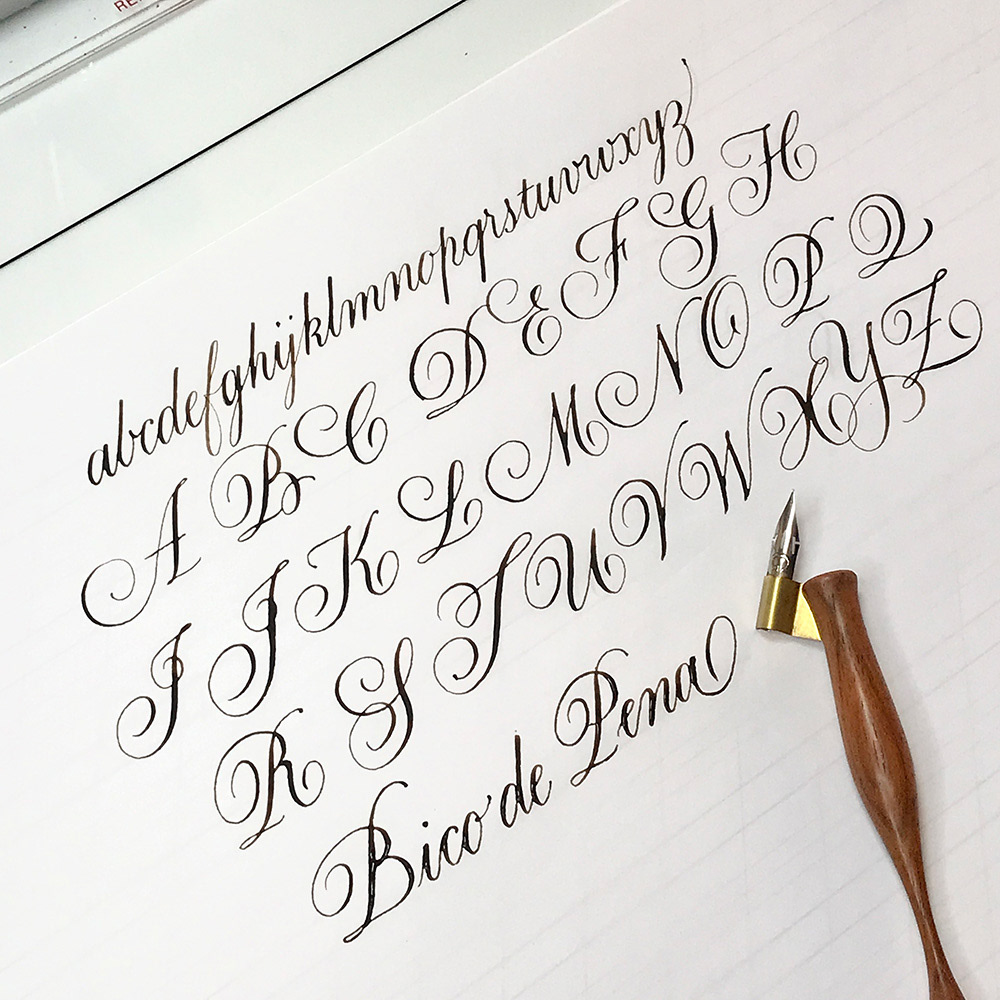 abcdefghijklmnopqrstuvwxyz
A B C D E F G H
I J K L M N O P Q
R S T U V W X Y Z
Bico de Pena